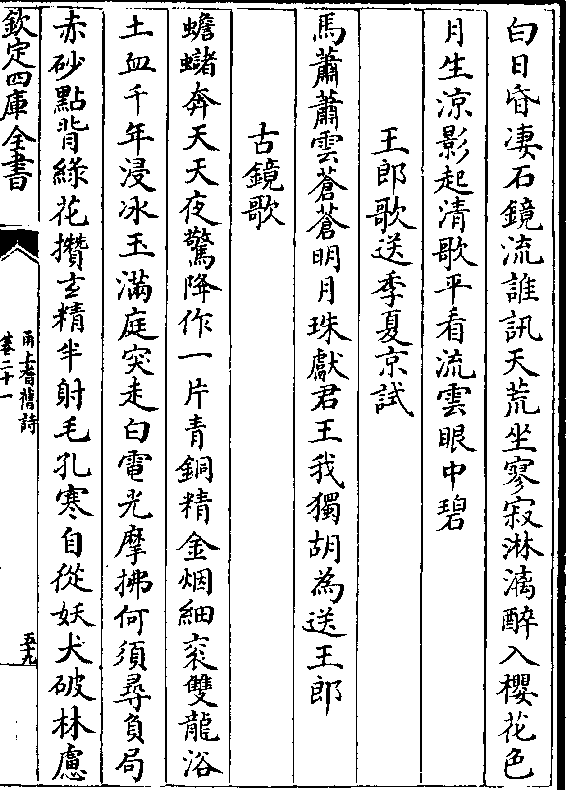 白日昏凄石鏡流誰訊天荒坐寥寂淋漓醉入櫻花色
月生涼影起清歌平看流雲眼中碧
王郎歌送季夏京試
馬蕭蕭雲蒼蒼明月珠獻君王我獨胡為送王郎
古鏡歌
蟾蠩奔天天夜驚降作一片青銅精金烟細衮雙龍浴
土血千年浸冰玉滿庭突走白電光摩拂何須尋負局
赤砂點背綠花攢玄精半射毛孔寒自從妖犬破林慮
欽定四庫全書
甬上耆舊詩
卷二十一
五九